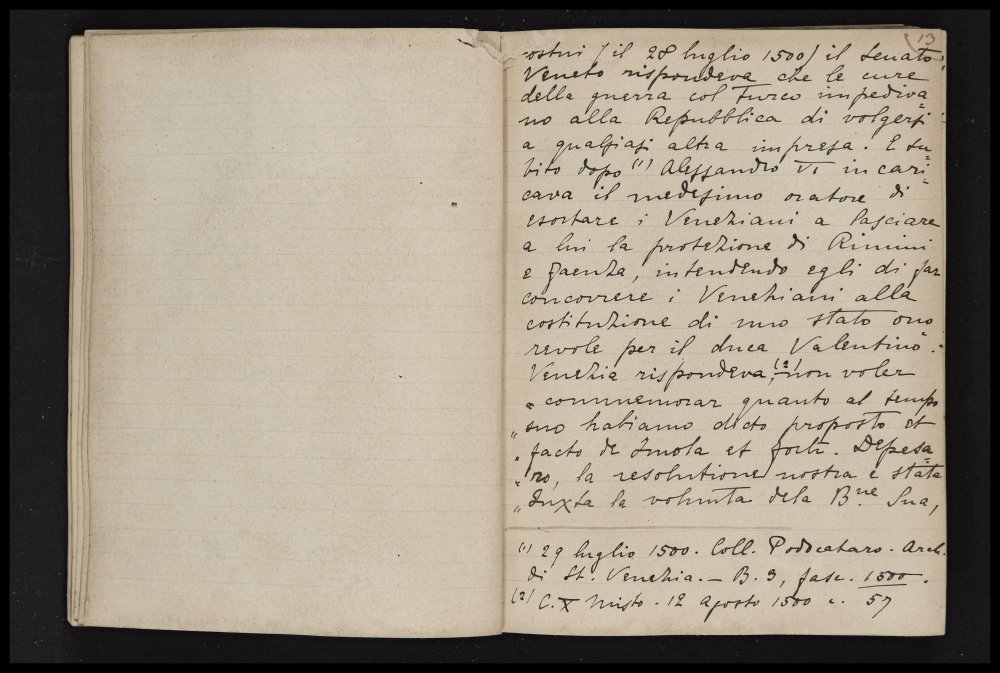 13
costui / il 28 luglio 1500 / il Senato
Veneto rispondeva che le cure
della guerra col Turco impediva=
no alla Repubblica di volgersi
a qualsiasi altra impresa. E su=
bito dopo (1) Alessandro VI incari=
cava il medesimo oratore di
esortare i Veneziani a lasciare
a lui la protezione di Rimini
e Faenza, intendendo egli di far
concorrere i Veneziani alla
costituzione di uno stato ono
revole per il duca Valentino.
Venezia rispondeva, (2) "non voler
" commemorar quanto al tempo
" suo habiamo dicto proposto et
" facto de Imola et Forli. De pesa=
" ro, la resolutione nostra è stata
" Iuxta la volunta dela B.ne Sua,
(1) 29 luglio 1500. Coll. Podocataro. Arch.
di St. Venezia. — B. 3, fasc. 1500.
(2) C. X Misto. 12 Agosto 1500 c. 57